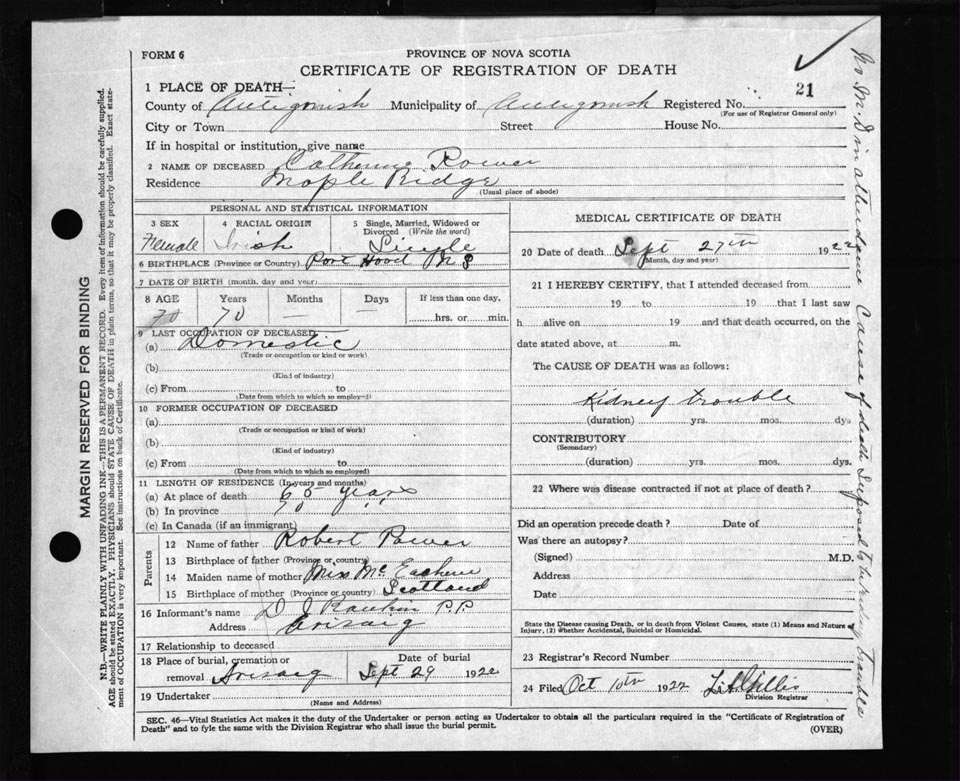 FORM 6
PROVINCE OF NOVA SCOTIA
CERTIFICATE OF REGISTRATION OF DEATH
21
1 PLACE OF DEATH—
County of Antigonish Municipality of Antigonish Registered No.
(For use of Registrar General only)
City or Town Street House No.
If in hospital or institution, give name
2 NAME OF DECEASED Catherine Power
Residence Maple Ridge
(Usual place of abode)
PERSONAL AND STATISTICAL INFORMATION
3 SEX 4 RACIAL ORIGIN 5 Single, Married, Widowed or Divorced (Write the word)
Female Irish Single
6 BIRTHPLACE (Province or Country) Port Hood N S
7 DATE OF BIRTH (month, day and year)
8 AGE Years Months Days If less than one day,
70 70 — — hrs. or min.
9 LAST OCCUPATION OF DECEASED
(a) Domestic
(Trade or occupation or kind or work)
(b)
(Kind of industry)
(c) From to
(Date from which to which so employed)
10 FORMER OCCUPATION OF DECEASED
(a)
(Trade or occupation or kind of work)
(b)
(Kind of industry)
(c) From to
(Date from which to which so employed)
11 LENGTH OF RESIDENCE (In years and months)
(a) At place of death 65 years
(b) In province 70 "
(c) In Canada (if an immigrant)
Parents
12 Name of father Robert Power
13 Birthplace of father (Province or country)
14 Maiden name of mother Miss McEachern
15 Birthplace of mother (Province or country) Scotland
16 Informant's name D J Rankin P.P.
Address Arisaig
17 Relationship to deceased
18 Place of burial, cremation or removal Arisaig Date of burial Sept 29 1922
19 Undertaker
(Name and Address)
MEDICAL CERTIFICATE OF DEATH
20 Date of death Sept 27th 1922
(Month, day and year)
21 I HEREBY CERTIFY, that I attended deceased from
19 to 19 that I last saw
h alive on 19 and that death occurred, on the
date stated above, at m.
The CAUSE OF DEATH was as follows:
Kidney trouble
(duration) yrs. mos. dys
CONTRIBUTORY
(Secondary)
(duration) yrs. mos. dys.
22 Where was disease contracted if not at place of death?
Did an operation precede death? Date of
Was there an autopsy?
(Signed) M.D.
Address
Date
State the Disease causing Death, or in death from Violent Causes, state (1) Means and Nature of
Injury, (2) whether Accidental, Suicidal or Homicidal.
23 Registrar's Record Number
24 Filed Oct 10th 1922 Gillis
Division Registrar
SEC. 46—Vital Statistics Act makes it the duty of the Undertaker or person acting as Undertaker to obtain all the particulars required in the "Certificate of Registration of
Death" and to fyle the same with the Division Registrar who shall issue the burial permit.
(OVER)
MARGIN RESERVED FOR BINDING
N.B.—WRITE PLAINLY WITH UNFADING INK—THIS IS A PERMANENT RECORD. Every item of information should be carefully supplied.
AGE should be stated EXACTLY. PHYSICIANS should STATE CAUSE OF DEATH in plain terms, so that it may be properly classified. Exact state-
ment of OCCUPATION is very important. See instructions on back of Certificate.
No M.D in attendance Cause of death Supposed to be kidney trouble